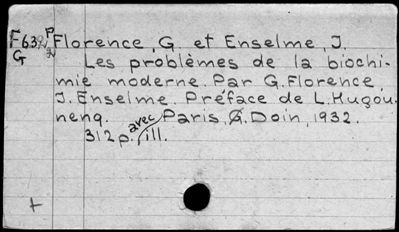 Florence, G. et Enselme, J.
G
Les problèmes de la biochi-
mie moderne. Par G. Florence,
J. Enselme. Préface de L. Hugou-
nenq. Paris, G. Doin, 1932.
312 p. avec ill.
+